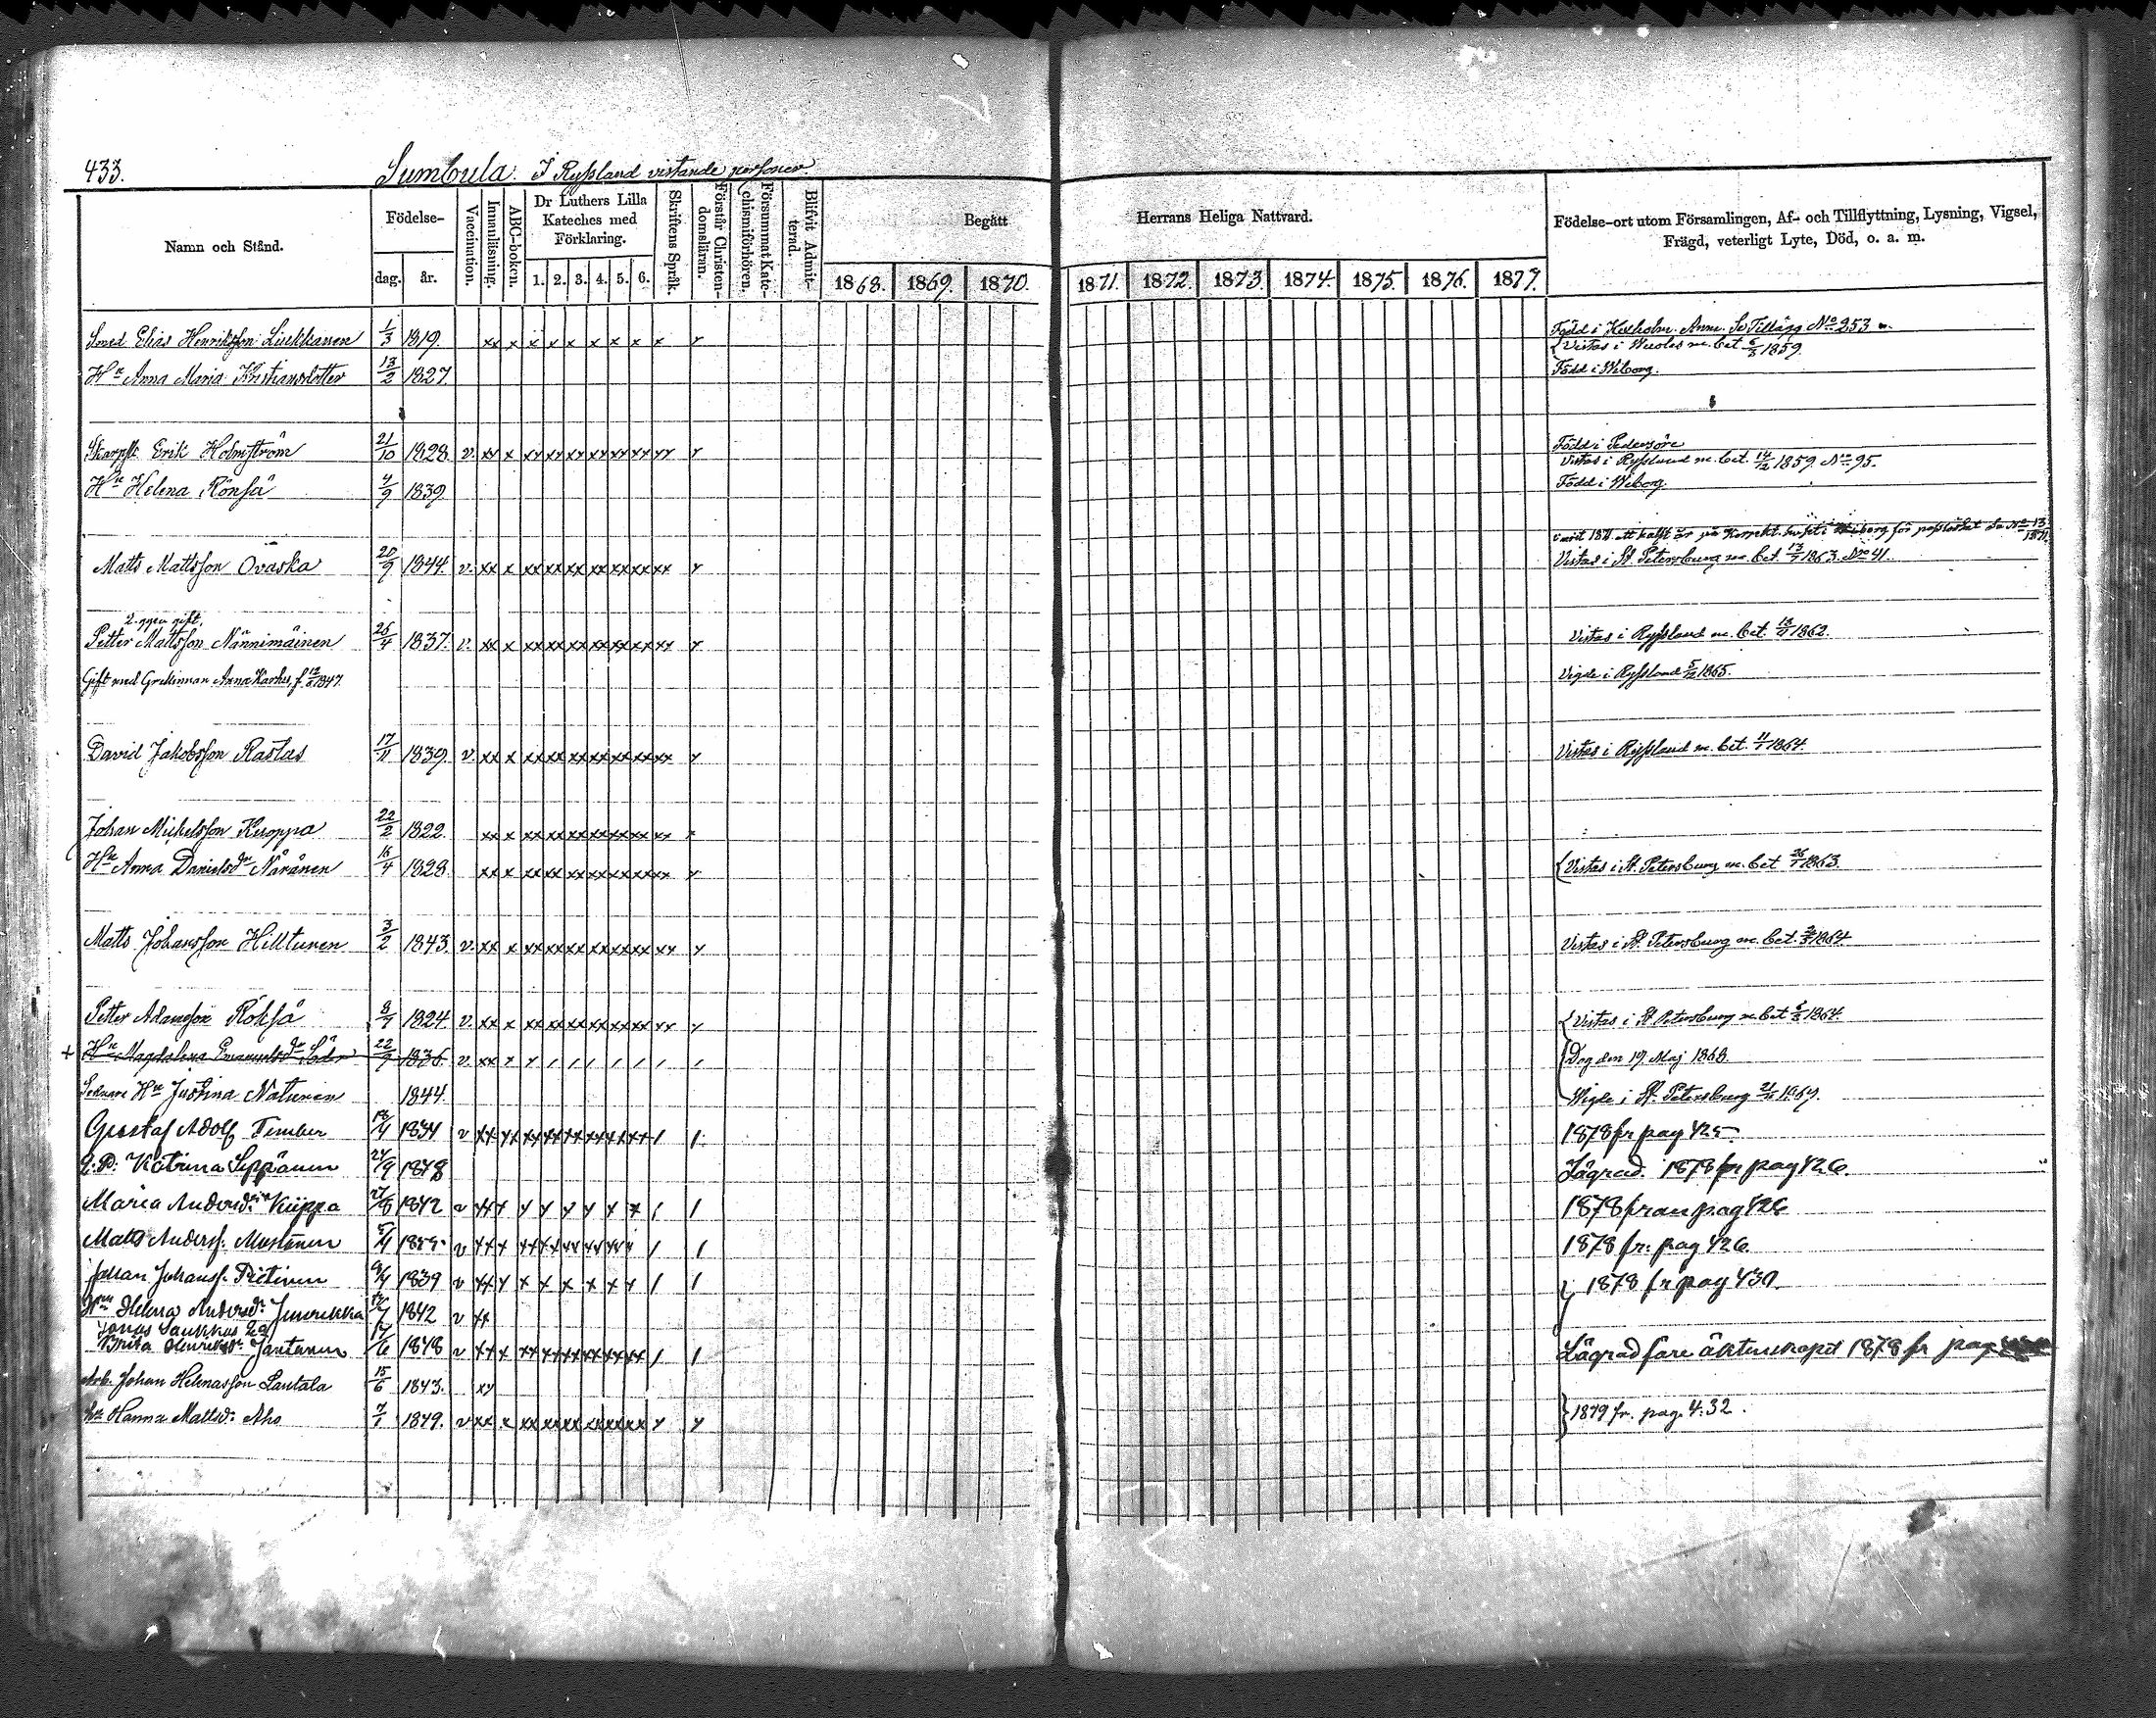 433. Sumbula. I Ryssland vistande personer.
Namn och Stånd.
Födelse-
dag. år.
Vaccination.
Innanläsning.
ABC-boken.
Dr Luthers Lilla
Kateches med
Förklaring.
1. 2. 3. 4. 5. 6.
Skriftens Språk.
Förstår Christen-
domsläran.
Försummat Kate-
chismiförhören.
Blifvit Admit-
terad.
Begått Herrans Heliga Nattvard.
1868. 1869. 1870. 1871. 1872. 1873. 1874. 1875. 1876. 1877.
Födelse-ort utom Församlingen, Af- och Tillflyttning, Lysning, Vigsel,
Frägd, veterligt Lyte, Död, o. a. m.
Smed Elias Henriksson Liukkanen 1/3 1819. xx x x x x x x x x x Född i Kexholm. Anm. Se Tillägg No 253
Vistas i m. bet. 6/3 1859.
Hu Anna Maria Kristiansdotter 13/2 1827. Född i Wiborg.
Erik Holmström 21/10 1828. v. xx x xx xx xx xx xx xx xx x Född i Pedersöre
Vistas i Ryssland m. bet. 14/2 1859. No 95.
Hu Helena Rönsä 4/9 1839 Född i Wiborg.
Matts Mattsson Ovaska 20/9 1844. v. xx x xx xx xx xx xx xx xx x Vistas i St Petersburg m. bet. 13/7 1863. No 41.
2. ggen gift.
Petter Mattsson Nännimäinen 25/4 1837. v. xx x xx xx xx xx xx xx xx x Vistas i Ryssland m. bet. 1862.
Gift med Qvinnan Anna Karhu, f. 1847. Vigde i Ryssland 5/12 1865.
David Jakobsson Rastas 17/11 1839. v. xx x xx xx xx xx xx xx xx x Vistas i Ryssland m. bet. 11/1 1864.
Johan Michelsson Kuoppa 22/2 1822. xx x xx xx xx xx xx xx xx x
Hu Anna Danielsdr Näränen 16/4 1828. xx x xx xx xx xx xx xx xx x Vistas i St. Petersburg m. bet 26/1 1863.
Matts Johansson Hilltunen 3/2 1843. v. xx x xx xx xx xx xx xx xx x Vistas i St. Petersburg m. bet. 1864.
Petter Adamsson Röksä 8/7 1824. v. xx x xx xx xx xx xx xx xx x Vistas i St Petersburg m. bet 1864.
+ Hu Magdalena Emanuelsdr 22/9 1836. v. xx x x / / / / / / / Dog den 19 Maj 1868.
Sednare Hu Justina Naturen 1844. Wigde i St. Petersburg 21/11 1869.
Gustaf Adolf Fember 18/4 1834 v xx xx xx xx xx xx xx xx / / 1878 fr pag 425
Katrina Seppänen 24/9 1848 Lägrad. 1878 fr pag 426.
Maria Andersdr Kiippa 27/8 1842 v xx x x x x x x x / / 1878 fran pag 426
Matts Anderss. Mustonen v xx x xx xx xx xx xx / / 1878 fr: pag 426.
Johan Johanss. Pietinen 9/4 1839 v xx x x x x x x x / / 1878 fr pag 430.
Hun Helena Andersdr 1842 v xx
Jonas Saukkus
Brita Henriksdr Jantunen 1848 v xx x xx xx xx xx xx xx / / Lägrad före äktenskapet 1878 fr pag
Arb. Johan Helenasson Lantala 15/6 1843. xx
hu Hanna Mattsd: Aho 7/1 1849. v xx x xx xx xx xx xx xx x x 1879 fr. pag. 432.